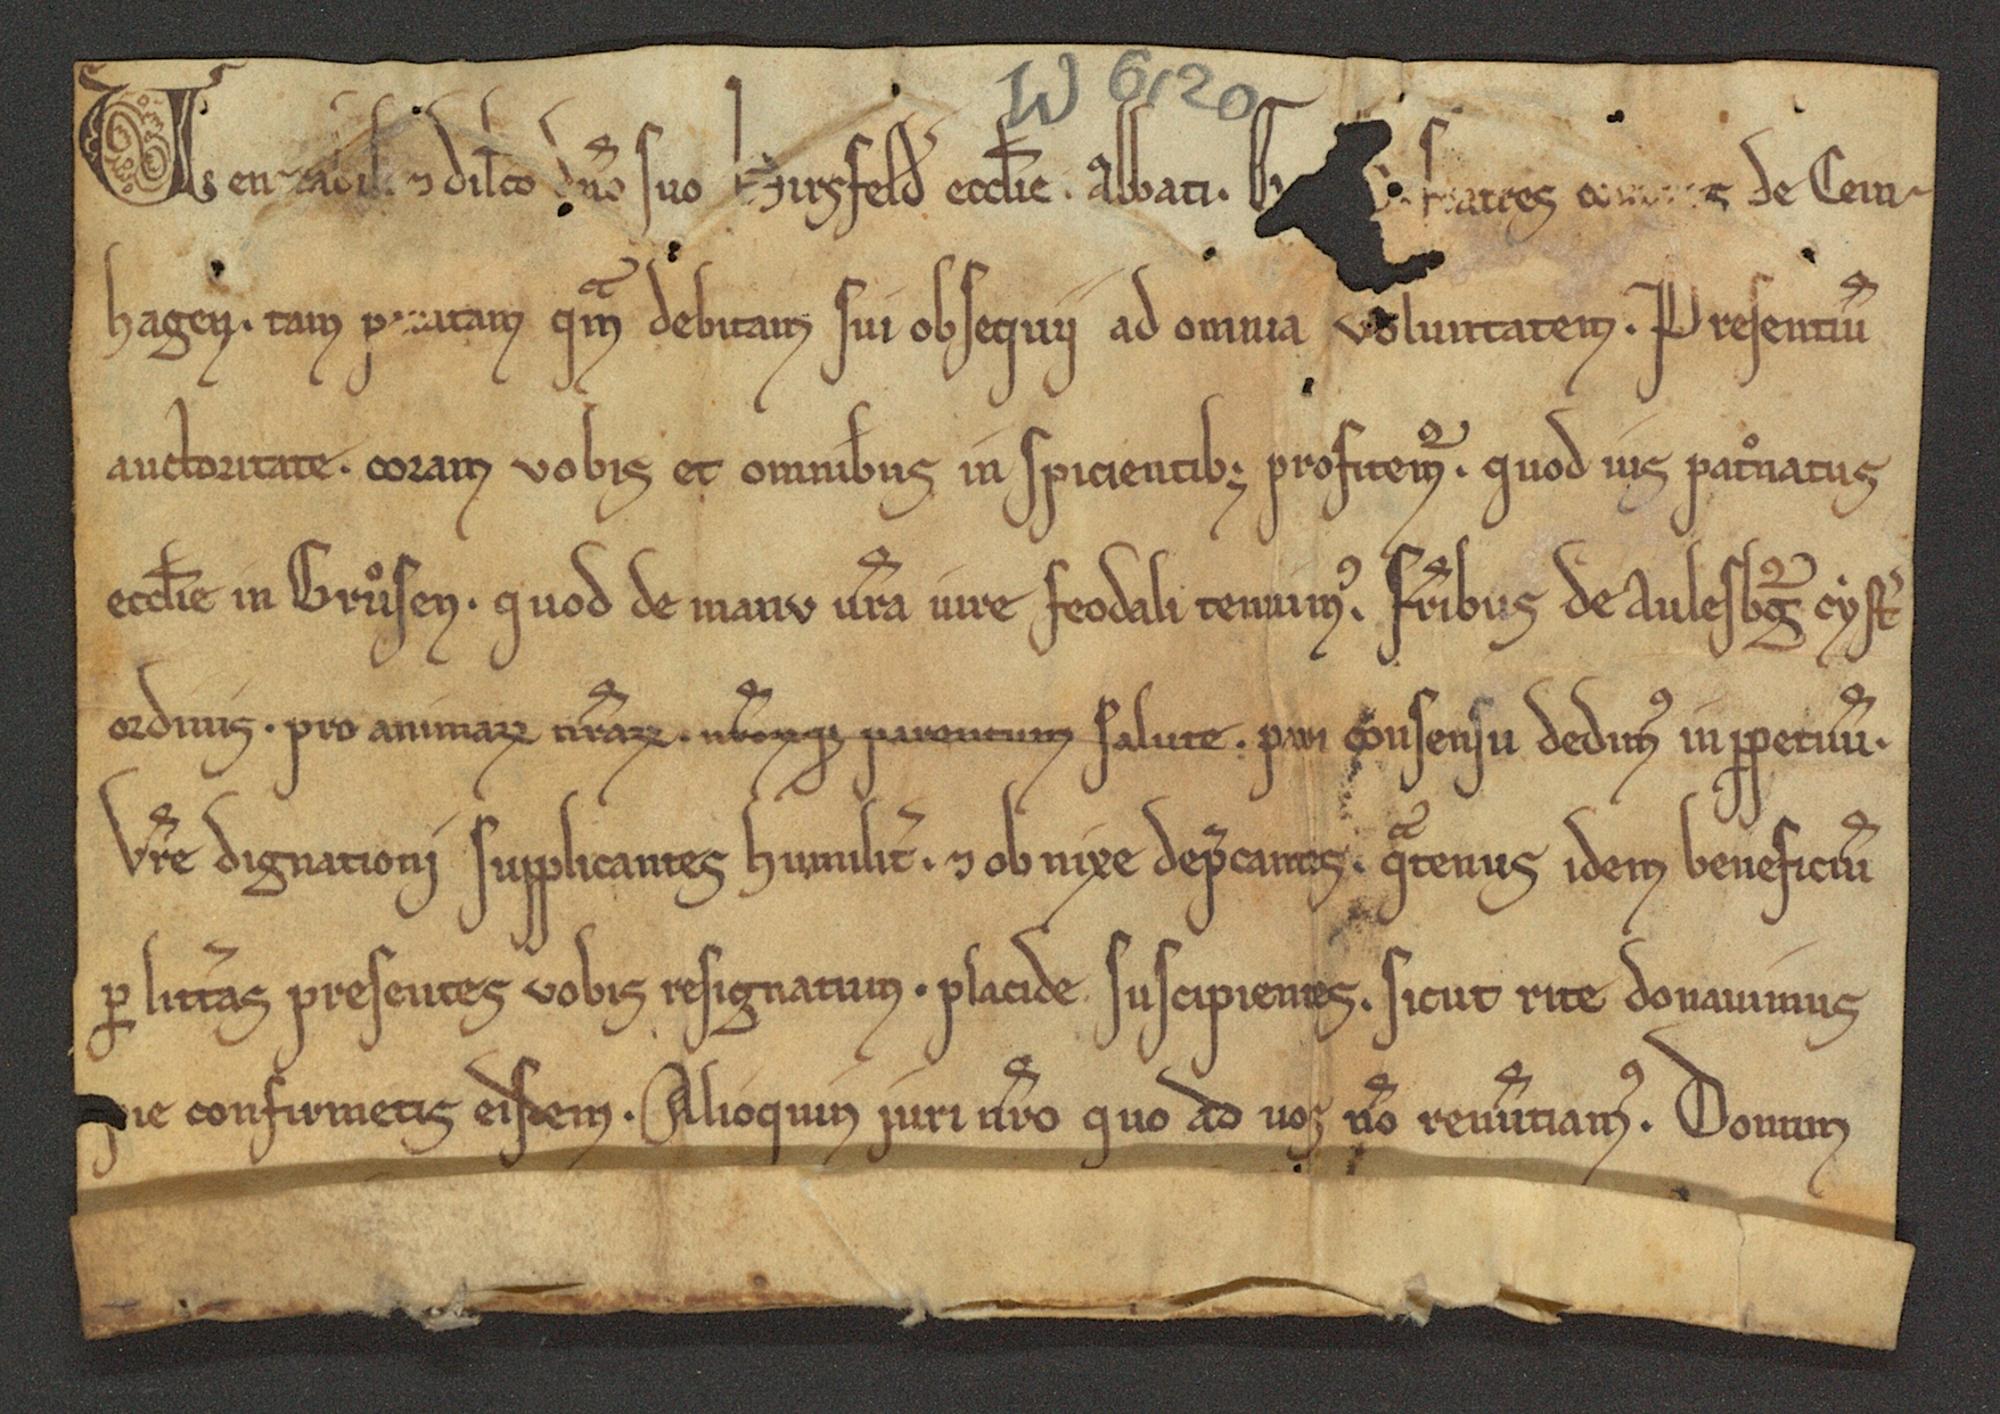 W 6120
Uenerabili ⁊ dil̄co dn̄o suo hirsfeld̄ eccl̄ie. abbati. fratres de Cem-
hagen. tam paratam qͣm debitam sui obsequij ad omnia voluntatem. Presentiū
auctoritate. coram vobis et omnibus in spicientib; profitem᷑. quod ius patͦnatus
eccl̄ie in Grůsen. quod de manv ur̄a iure feodali tenuimꝰ. fr̄ibus de Aulesb᷑ḡ cyst̄
ordinis. pro animaꝝ nr̄aꝝ. nr̄oꝝqꝫ parentum salute. pari consensu dedimꝰ in ꝑpetuū.
Vr̄e dignationj supplicantes humilit̄. ⁊ ob nixe dep̄cantes. qͣtenus idem beneficiū
ꝑ litt̄as presentes vobis resignatum. placide suscipientes. sicut rite donauimus
pie confirmetis eisdem. Alioquin juri nr̄o quo ad uos nō renūtiamꝰ. Donum